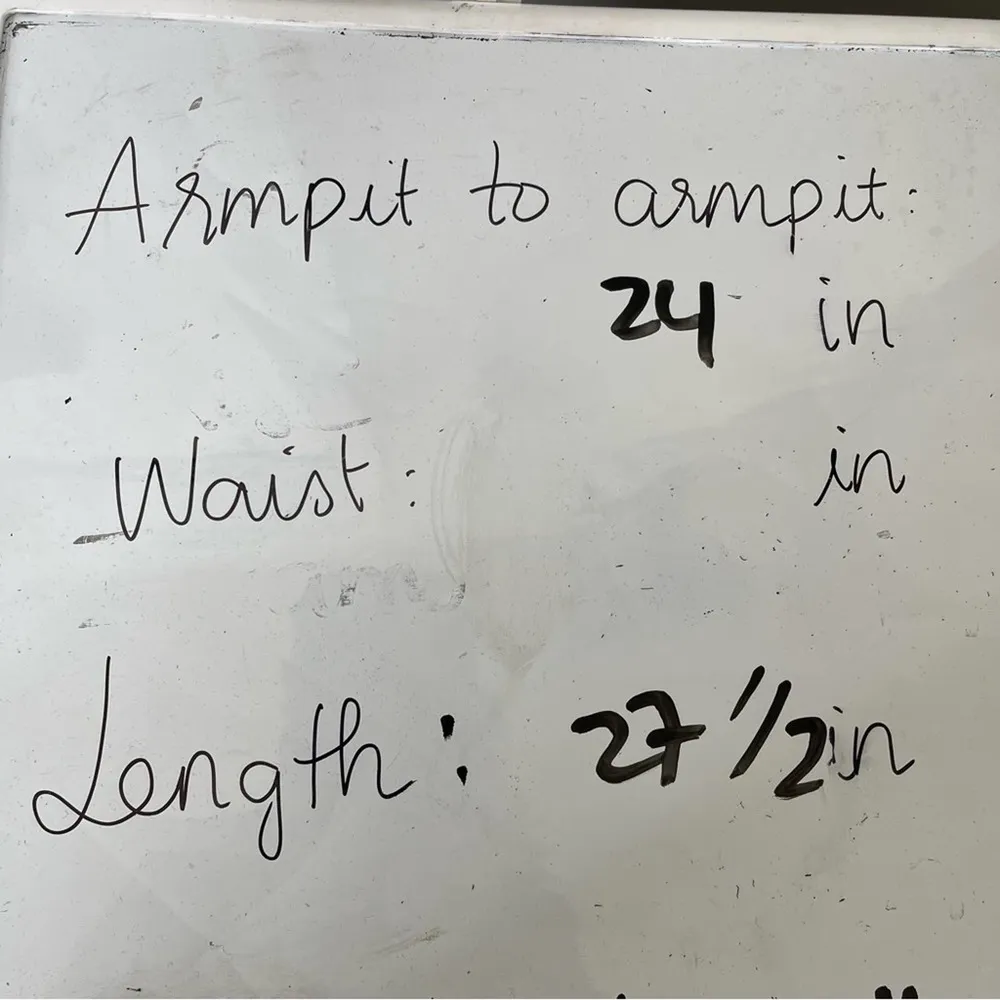 Armpit to armpit:
24 in
Waist: in
Length: 27 1/2 in